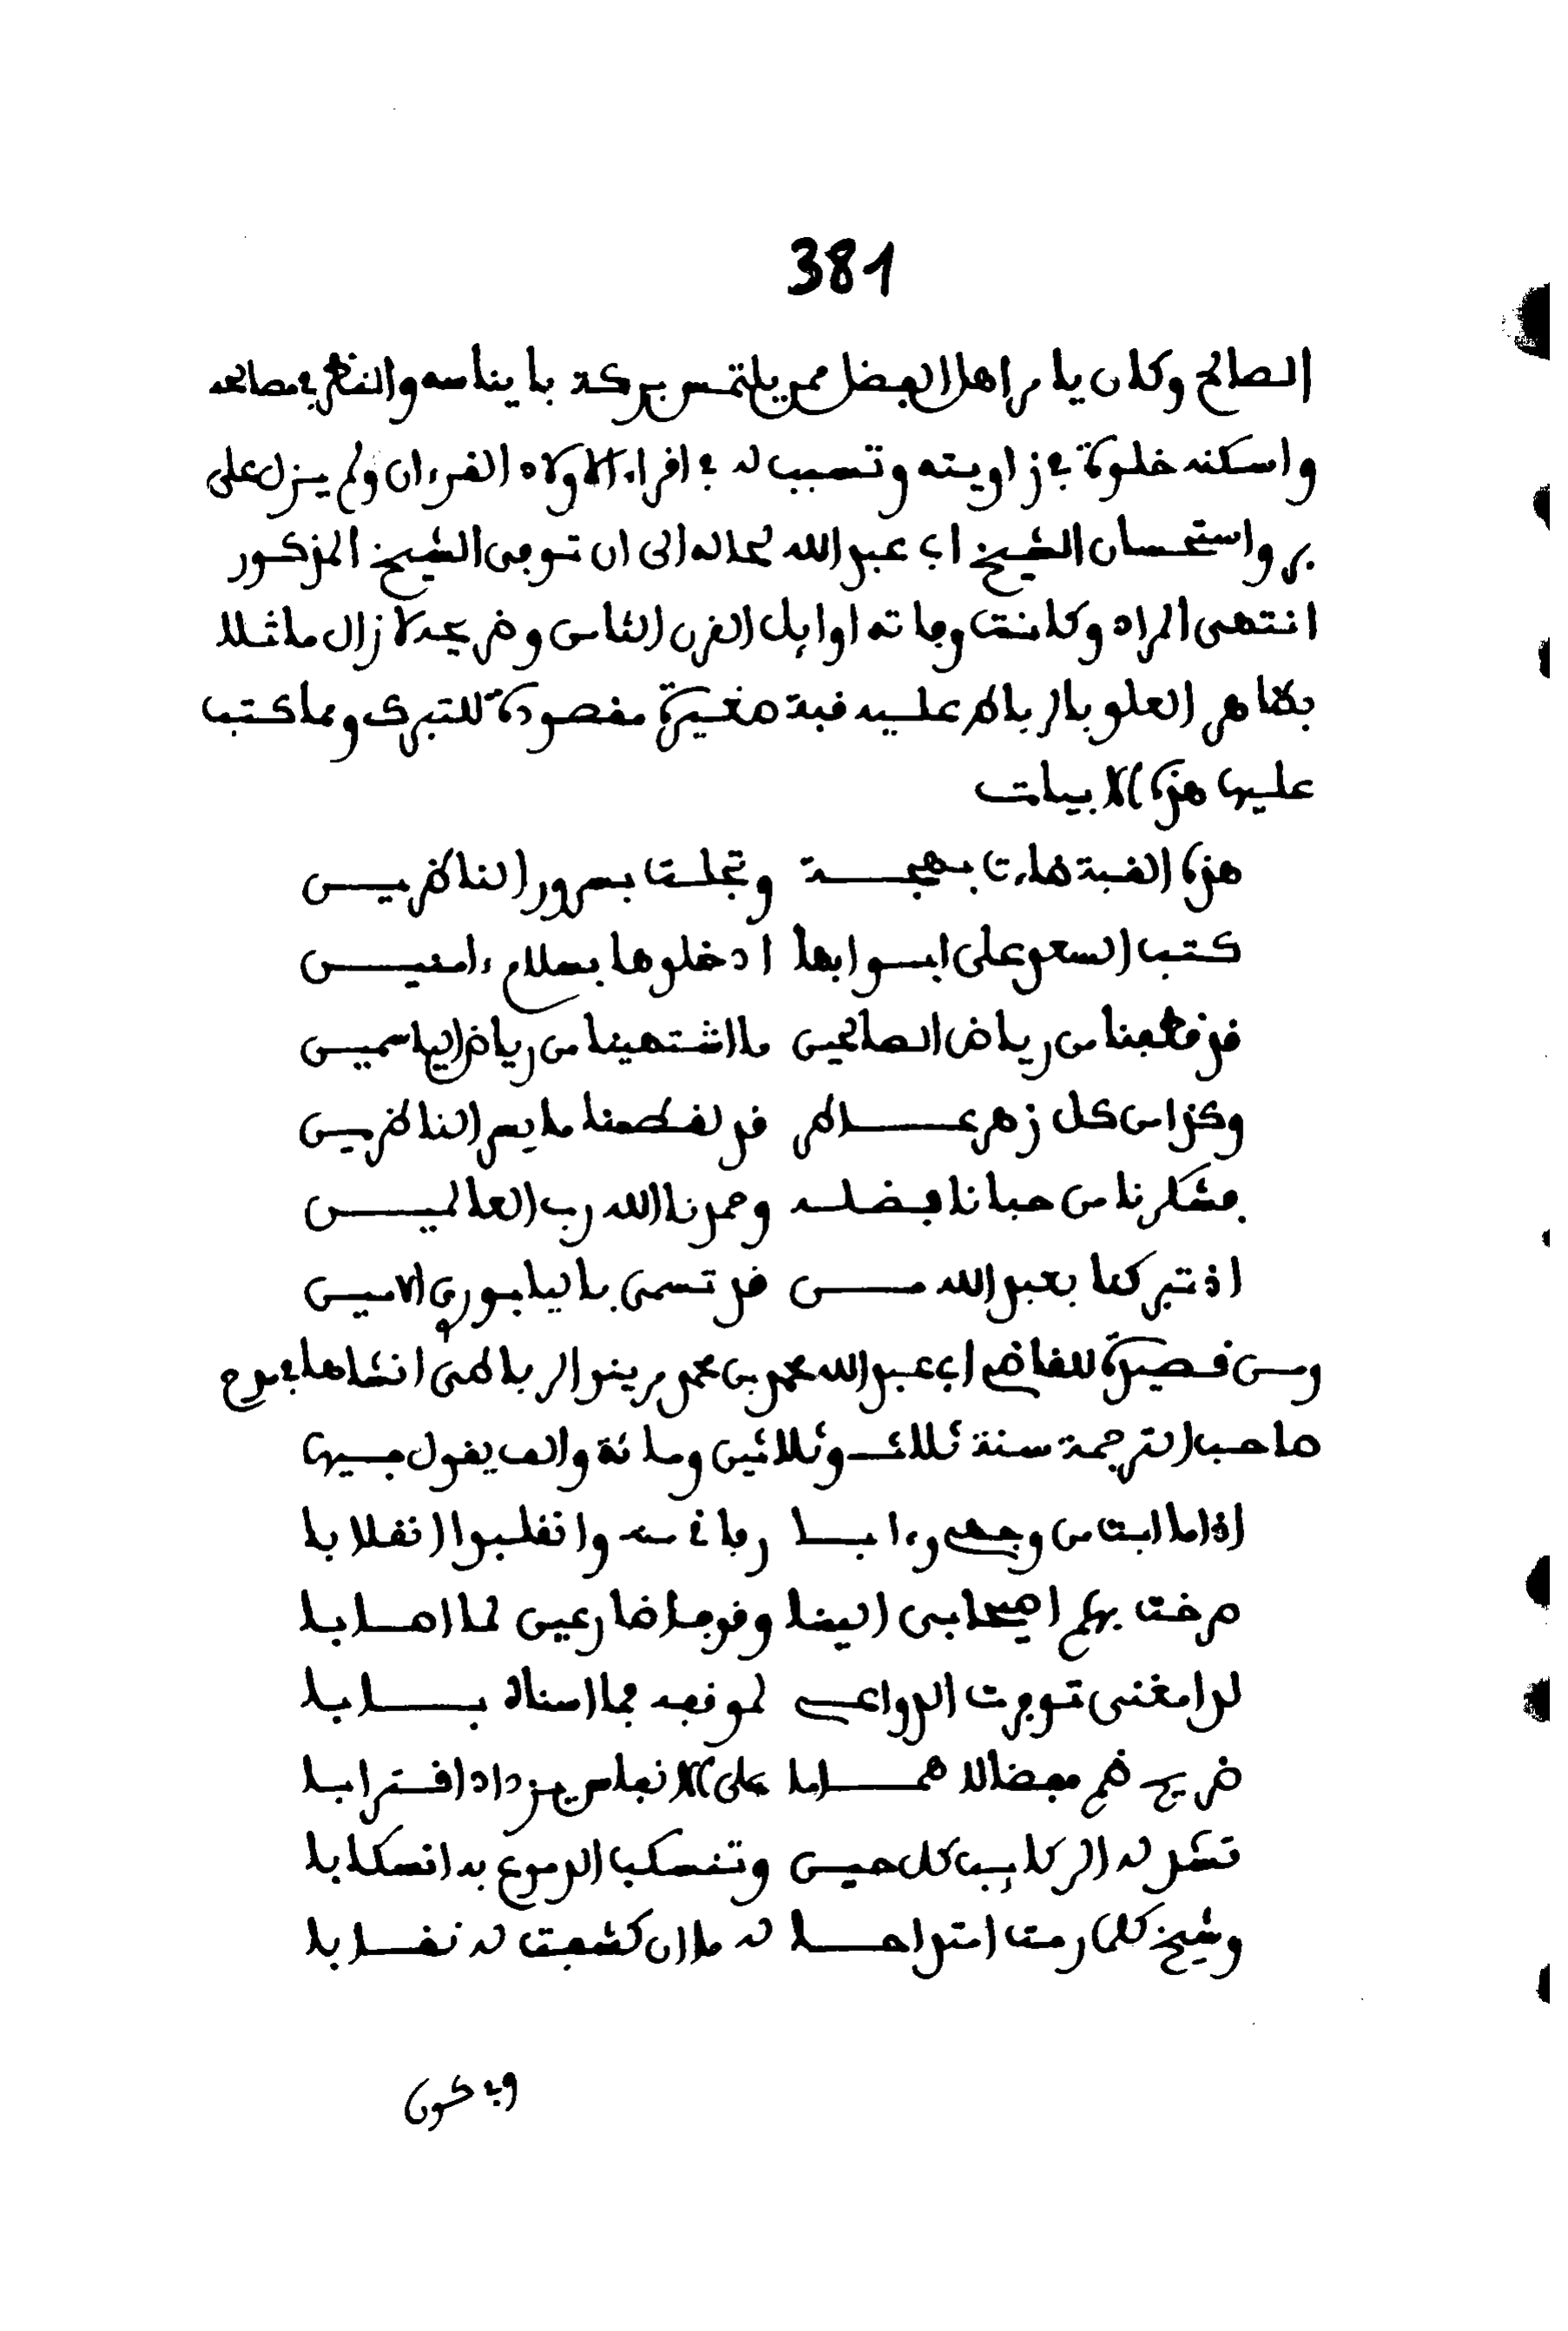 381
الصالح وكان يامر اهل الفضل ممن يلتمس بركة بايناسه والنظر في مصالحه
واسكنه خلوة في زاويته وتسبب له في اقراء الاولاد القرءان ولم يزل على
بر واستحسان الشيخ ابي عبد الله لحاله الى ان توفي الشيخ المذكور
انتهى المراد وكانت وفاته اوايل القرن الثامن وضريحه لا زال ماثلا
بظاهر العلو بالرباط عليه قبة صغيرة مقصودة للتبرك ومما كتب
عليها هذه الابيات
هذه القبة ضاءت بهجة وتجلت بسرور الناظرين
كتب السعد على ابوابها ادخلوها بسلام ءامنين
قد قطفنا من رياض الصالحين ما اشتهينا من رياض الياسمين
وكذا من كل زهر عاطر قد لقطنا ما يسر الناظرين
فشكرنا من حبانا فضله وحمدنا الله رب العالمين
اذ تبركنا بعبد الله من قد تسمى باليابوري الامين
ومن قصيدة للقاضي ابي عبد الله محمد بن محمد مرينو الرباطي انشاها في مدح
صاحب الترجمة سنة ثلاث وثلاثين ومائة والف يقول فيها
اذا ما ابت من وجه وءابا رفاغ منه وانقلبوا انقلابا
صرخت بهم اصحابي الينا وقوما ضارعين لما اصابا
لدا مغنى توفرت الدواعي لموقفه بما اسناه بابا
ضريح ضم مفضالا هماما على الانفاس يزداد اقترابا
تشد له الركايب كل حين وتنسكب الدموع به انسكابا
وشيخ كلما رمت امتداحا له ما ان كشفت له نقابا
وفي كون